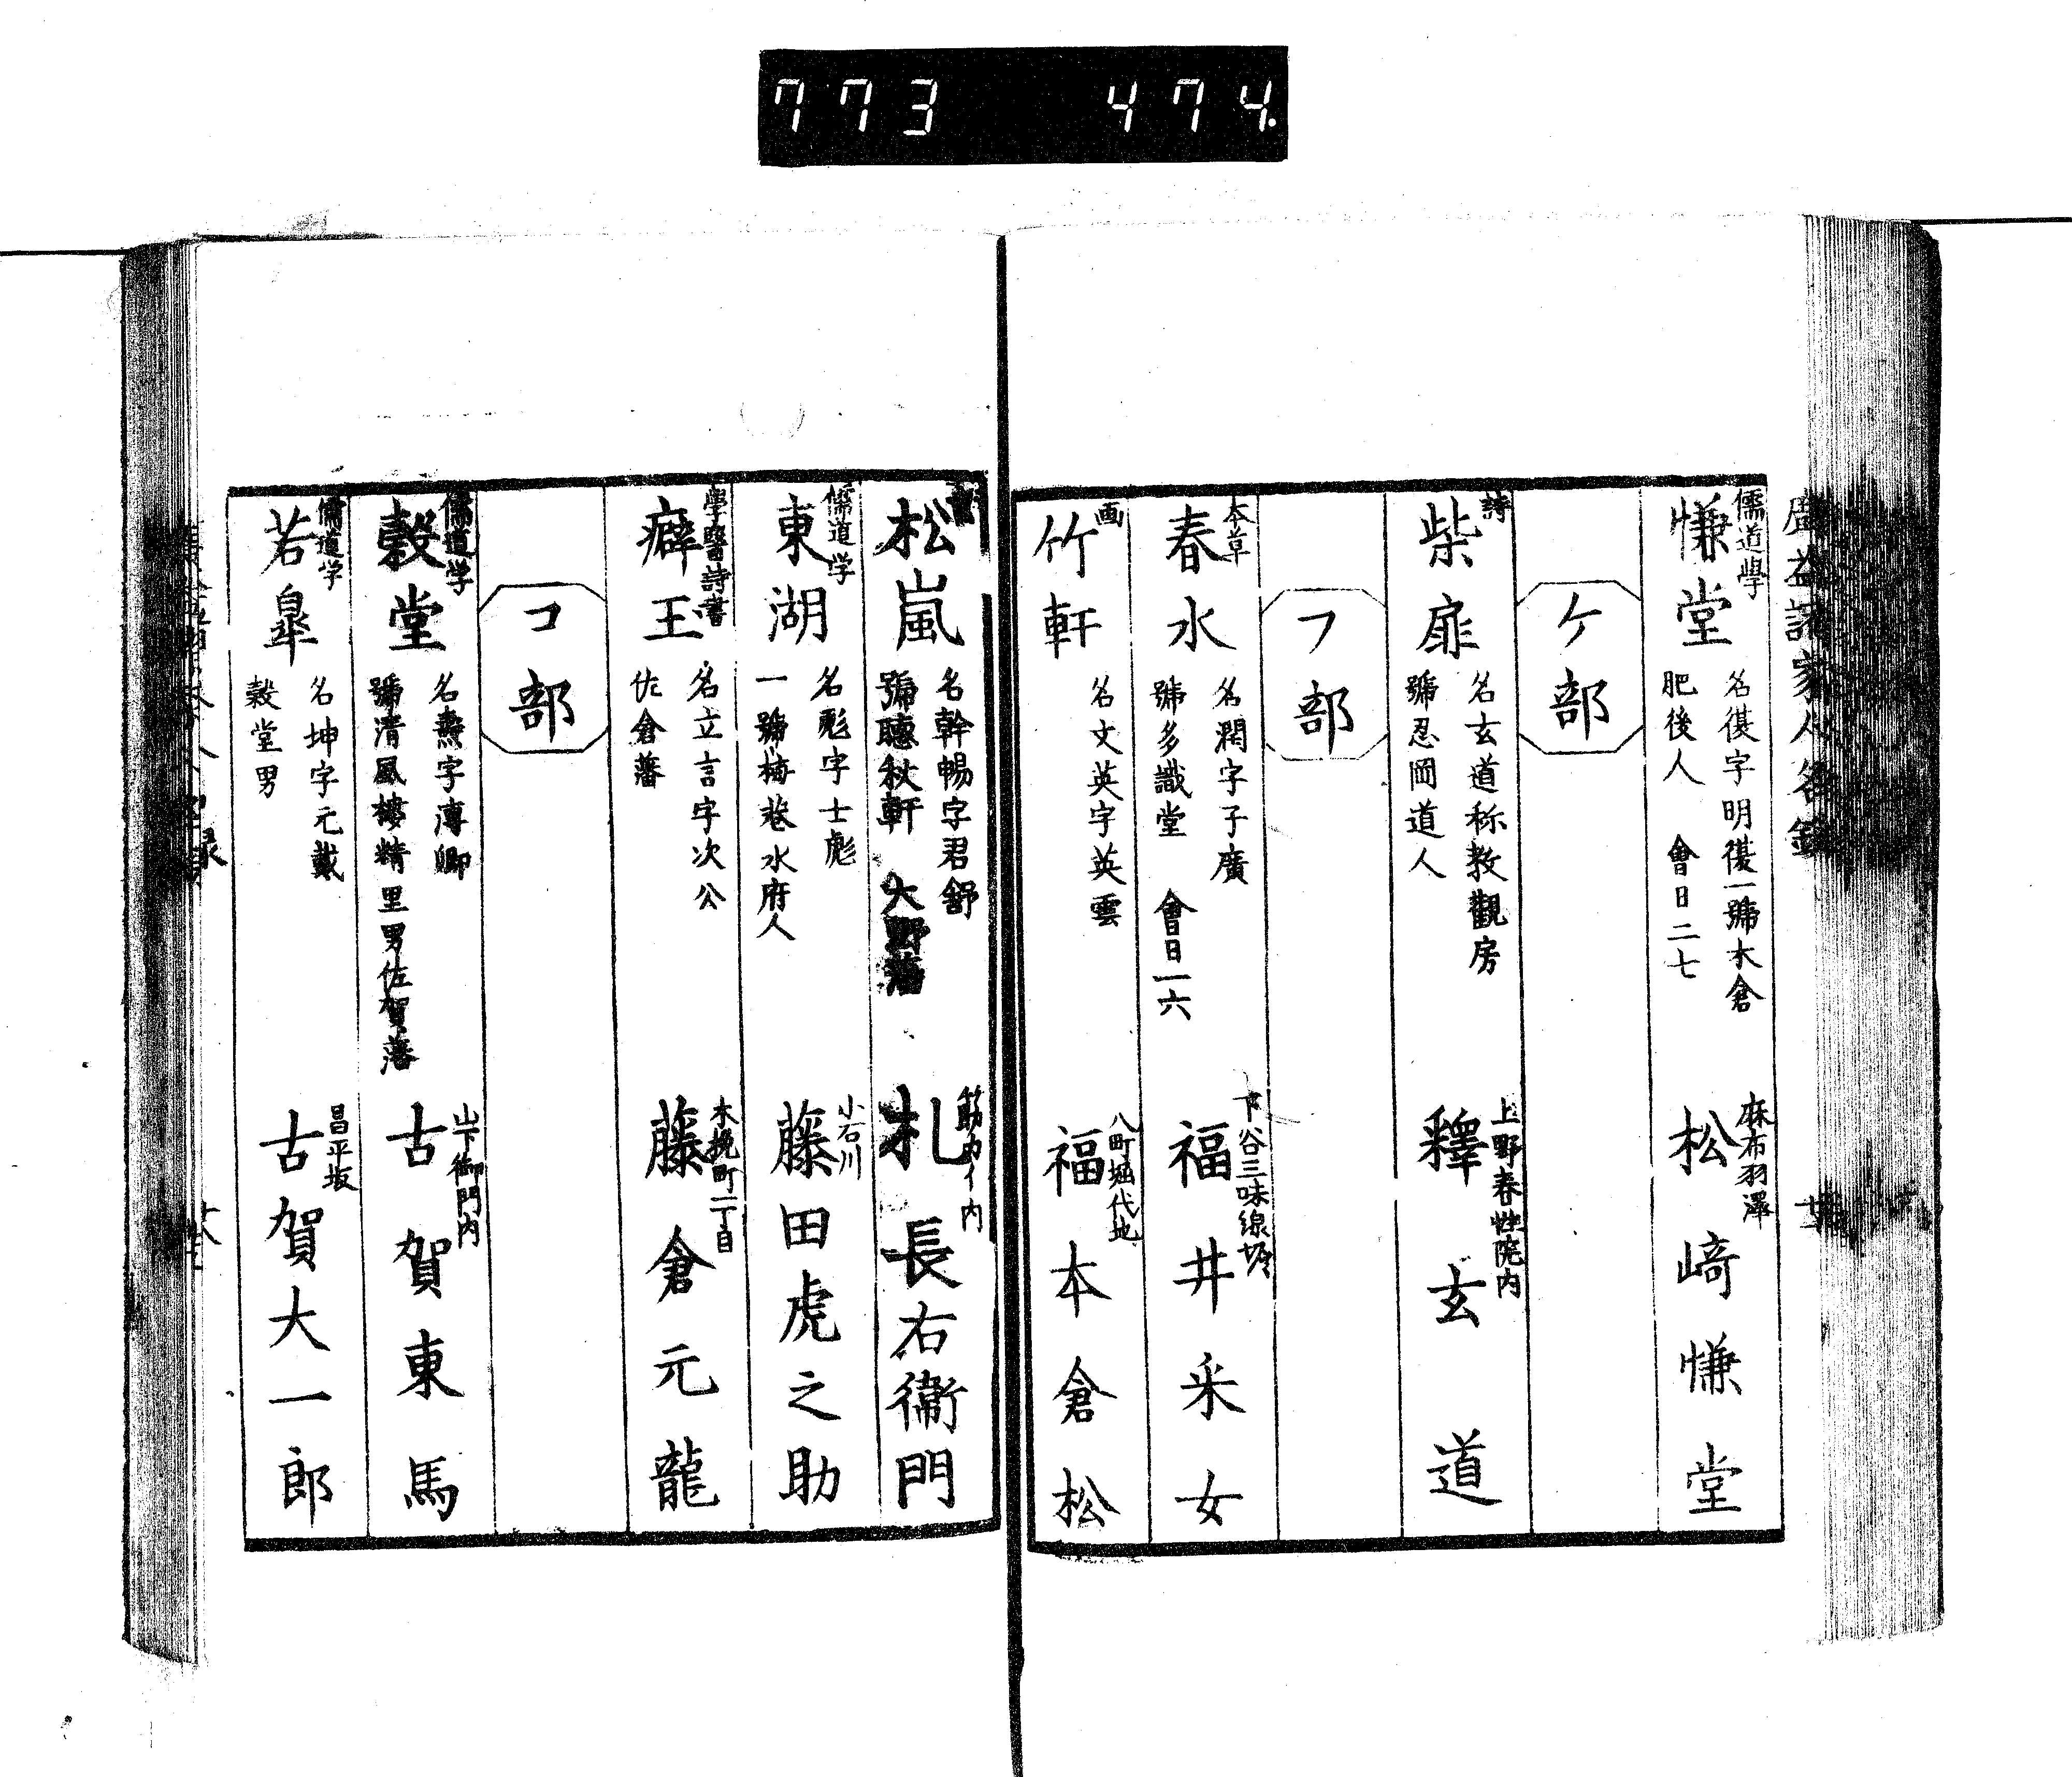 773 474.
儒道學
慊堂
名復字明復一號木倉
肥後人 會日二七
麻布羽澤
松﨑慊堂
ケ部
詩
柴扉
名玄道称教觀房
號忍岡道人
上野春性院内
釋玄道
フ部
本草
春水
名潤字子廣
號多識堂 會日一六
下谷三味線堀
福井采女
画
竹軒
名文英字英雲
八町堀代地
福本倉松
松嵐
名幹暢字君舒
號聴秋軒 大野藩
筋カイ内
札長右衛門
儒道学
東湖
名彪字士彪
一號梅巷水府人
小石川
藤田虎之助
學醫詩書
癖王
名立言字次公
佐倉藩
木挽町二丁目
藤倉元龍
コ部
儒道学
穀堂
名燾字溥卿
號清風楼精里男佐賀藩
山下御門内
古賀東馬
儒道学
若皐
名坤字元載
穀堂男
昌平坂
古賀大一郎